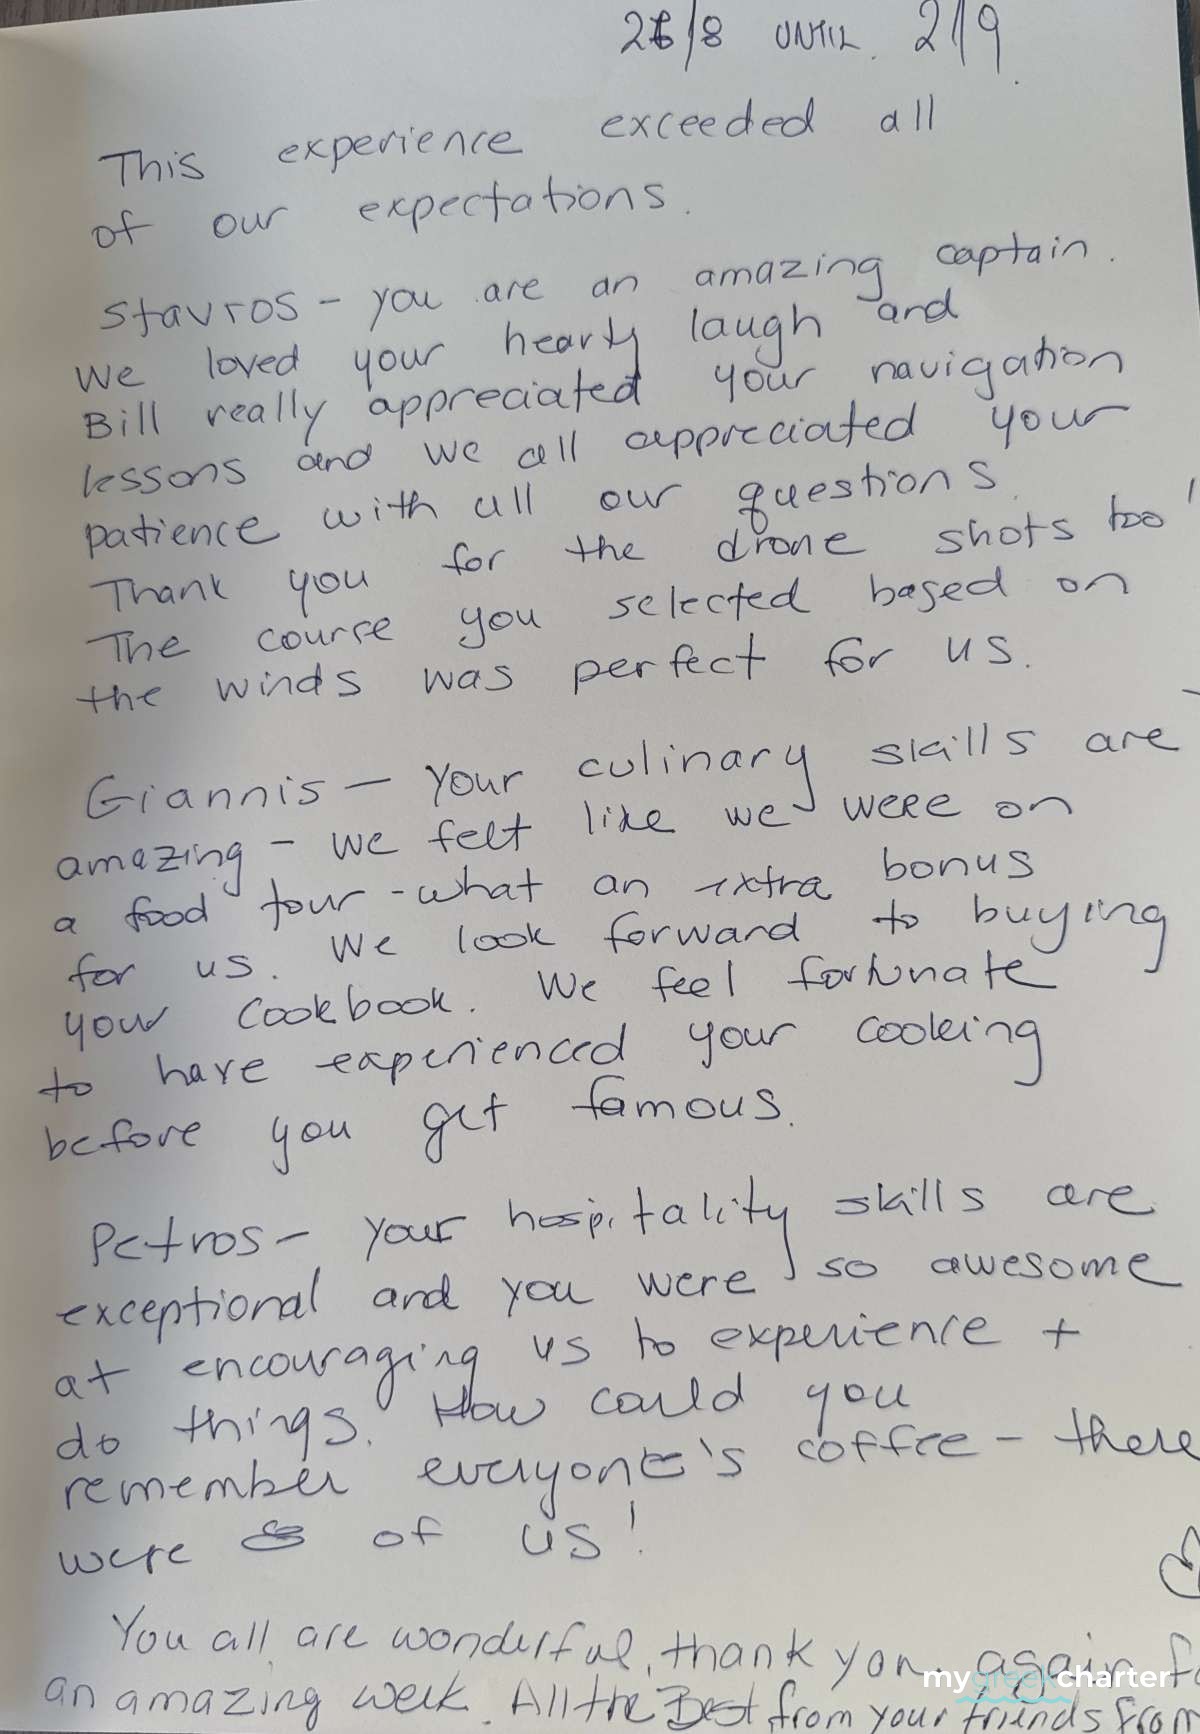 26/8 UNTIL 2/9
This experience exceeded all
of our expectations.
Stavros - you are an amazing captain.
We loved your hearty laugh and
Bill really appreciated your navigation
lessons and we all appreciated your
patience with all our questions.
Thank you for the drone shots too!
The course you selected based on
the winds was perfect for us.
Giannis - your culinary skills are
amazing - we felt like we were on
a food tour - what an extra bonus
for us. We look forward to buying
your cookbook. We feel fortunate
to have experienced your cooking
before you get famous.
Petros - your hospitality skills are
exceptional and you were so awesome
at encouraging us to experience +
do things. How could you
remember everyone's coffee - there
were of us!
You all are wonderful, thank you again
an amazing week. All the Best from your friends from
mygreekcharter